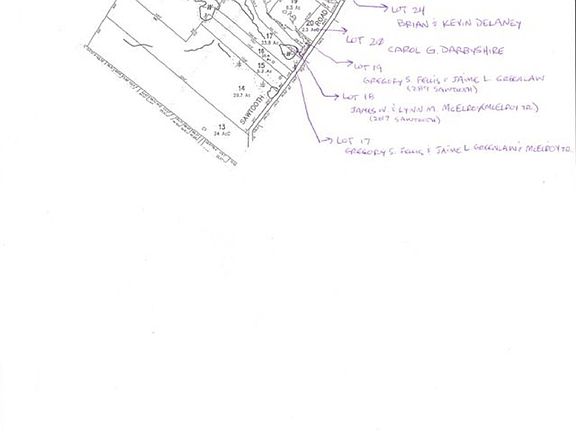 LOT 24
BRIAN & KEVIN DELANEY
LOT 20
CAROL G. DARBYSHIRE
LOT 19
GREGORY S. FELLIS & JAIME L GREENLAW
(2117 SAWTOOTH)
LOT 18
JAMES W. & LYNN M McELROY (McELROY TR.)
(2117 SAWTOOTH)
LOT 17
GREGORY S. FELLIS & JAIME L GREENLAW & McELROY TR.
19
8.3 Ac
20
2.3 Ac
ROAD
17
23.8 Ac
16
15
14
29.7 Ac
13
24 Ac
SAWTOOTH